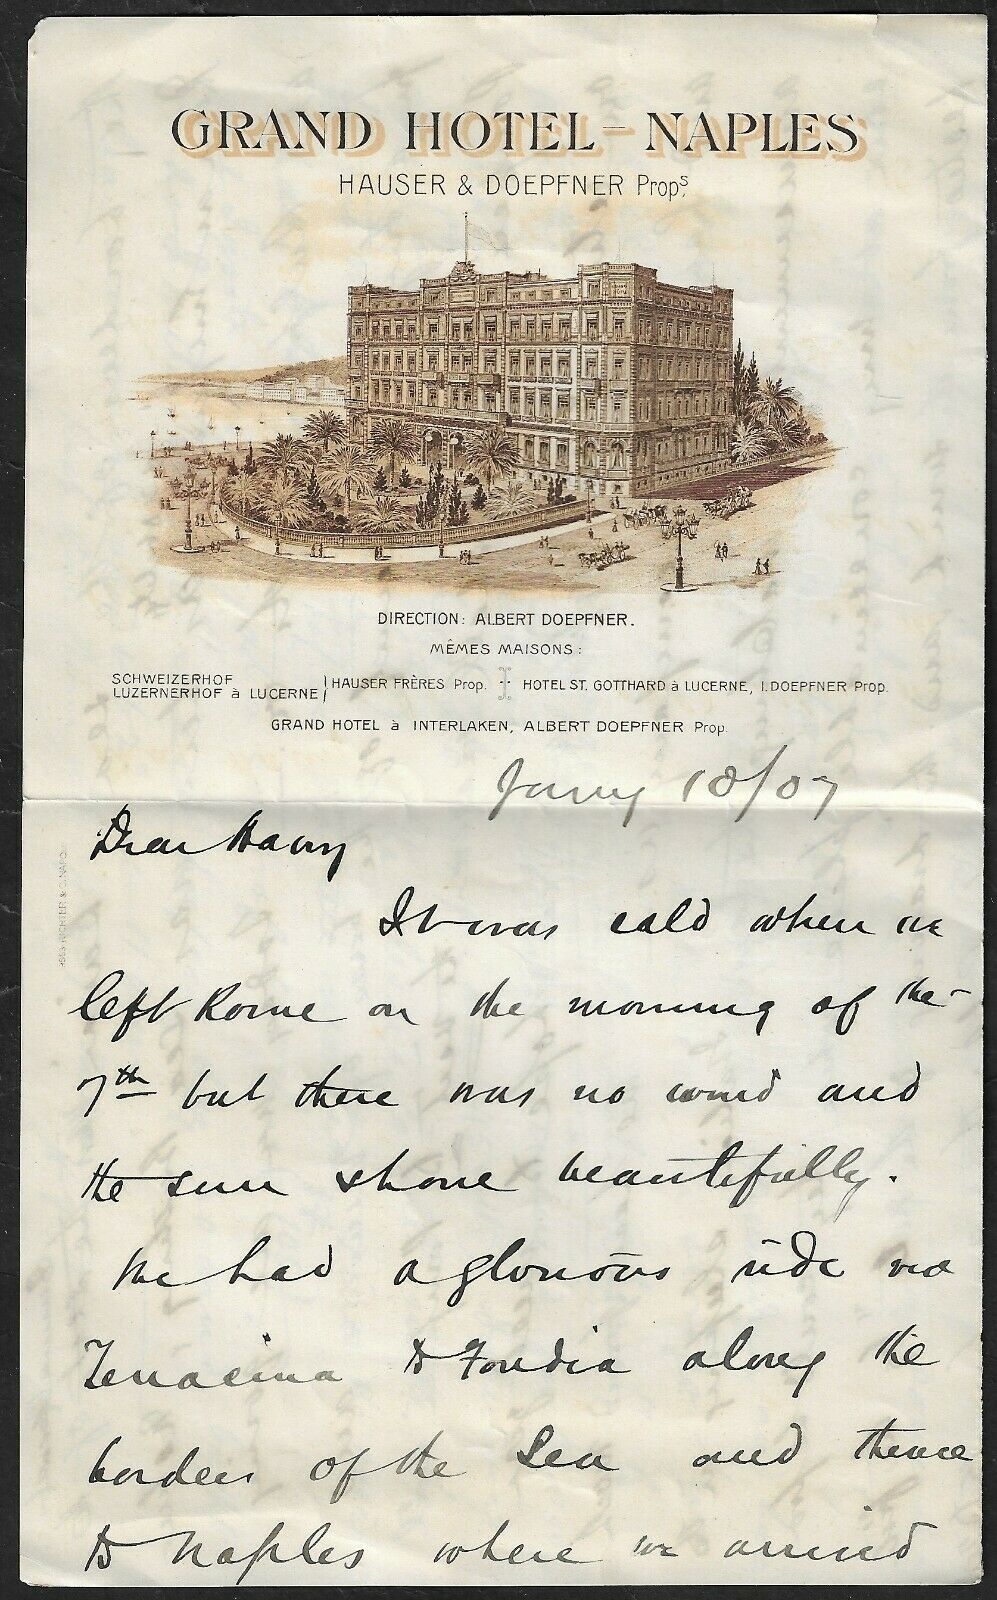 GRAND HOTEL – NAPLES
HAUSER & DOEPFNER Props.
DIRECTION: ALBERT DOEPFNER.
MÊMES MAISONS:
SCHWEIZERHOF
LUZERNERHOF à LUCERNE HAUSER FRÈRES Prop. HOTEL ST. GOTTHARD à LUCERNE, I. DOEPFNER Prop.
GRAND HOTEL à INTERLAKEN, ALBERT DOEPFNER Prop.
RICHTER & C. NAPO
Jany 10/07
Dear Harry
It was cold when we
left Rome on the morning of the
7th but there was no wind and
the sun shone beautifully.
We had a glorious ride via
Terracina to Fondia along the
borders of the Sea and thence
to Naples where we arrived